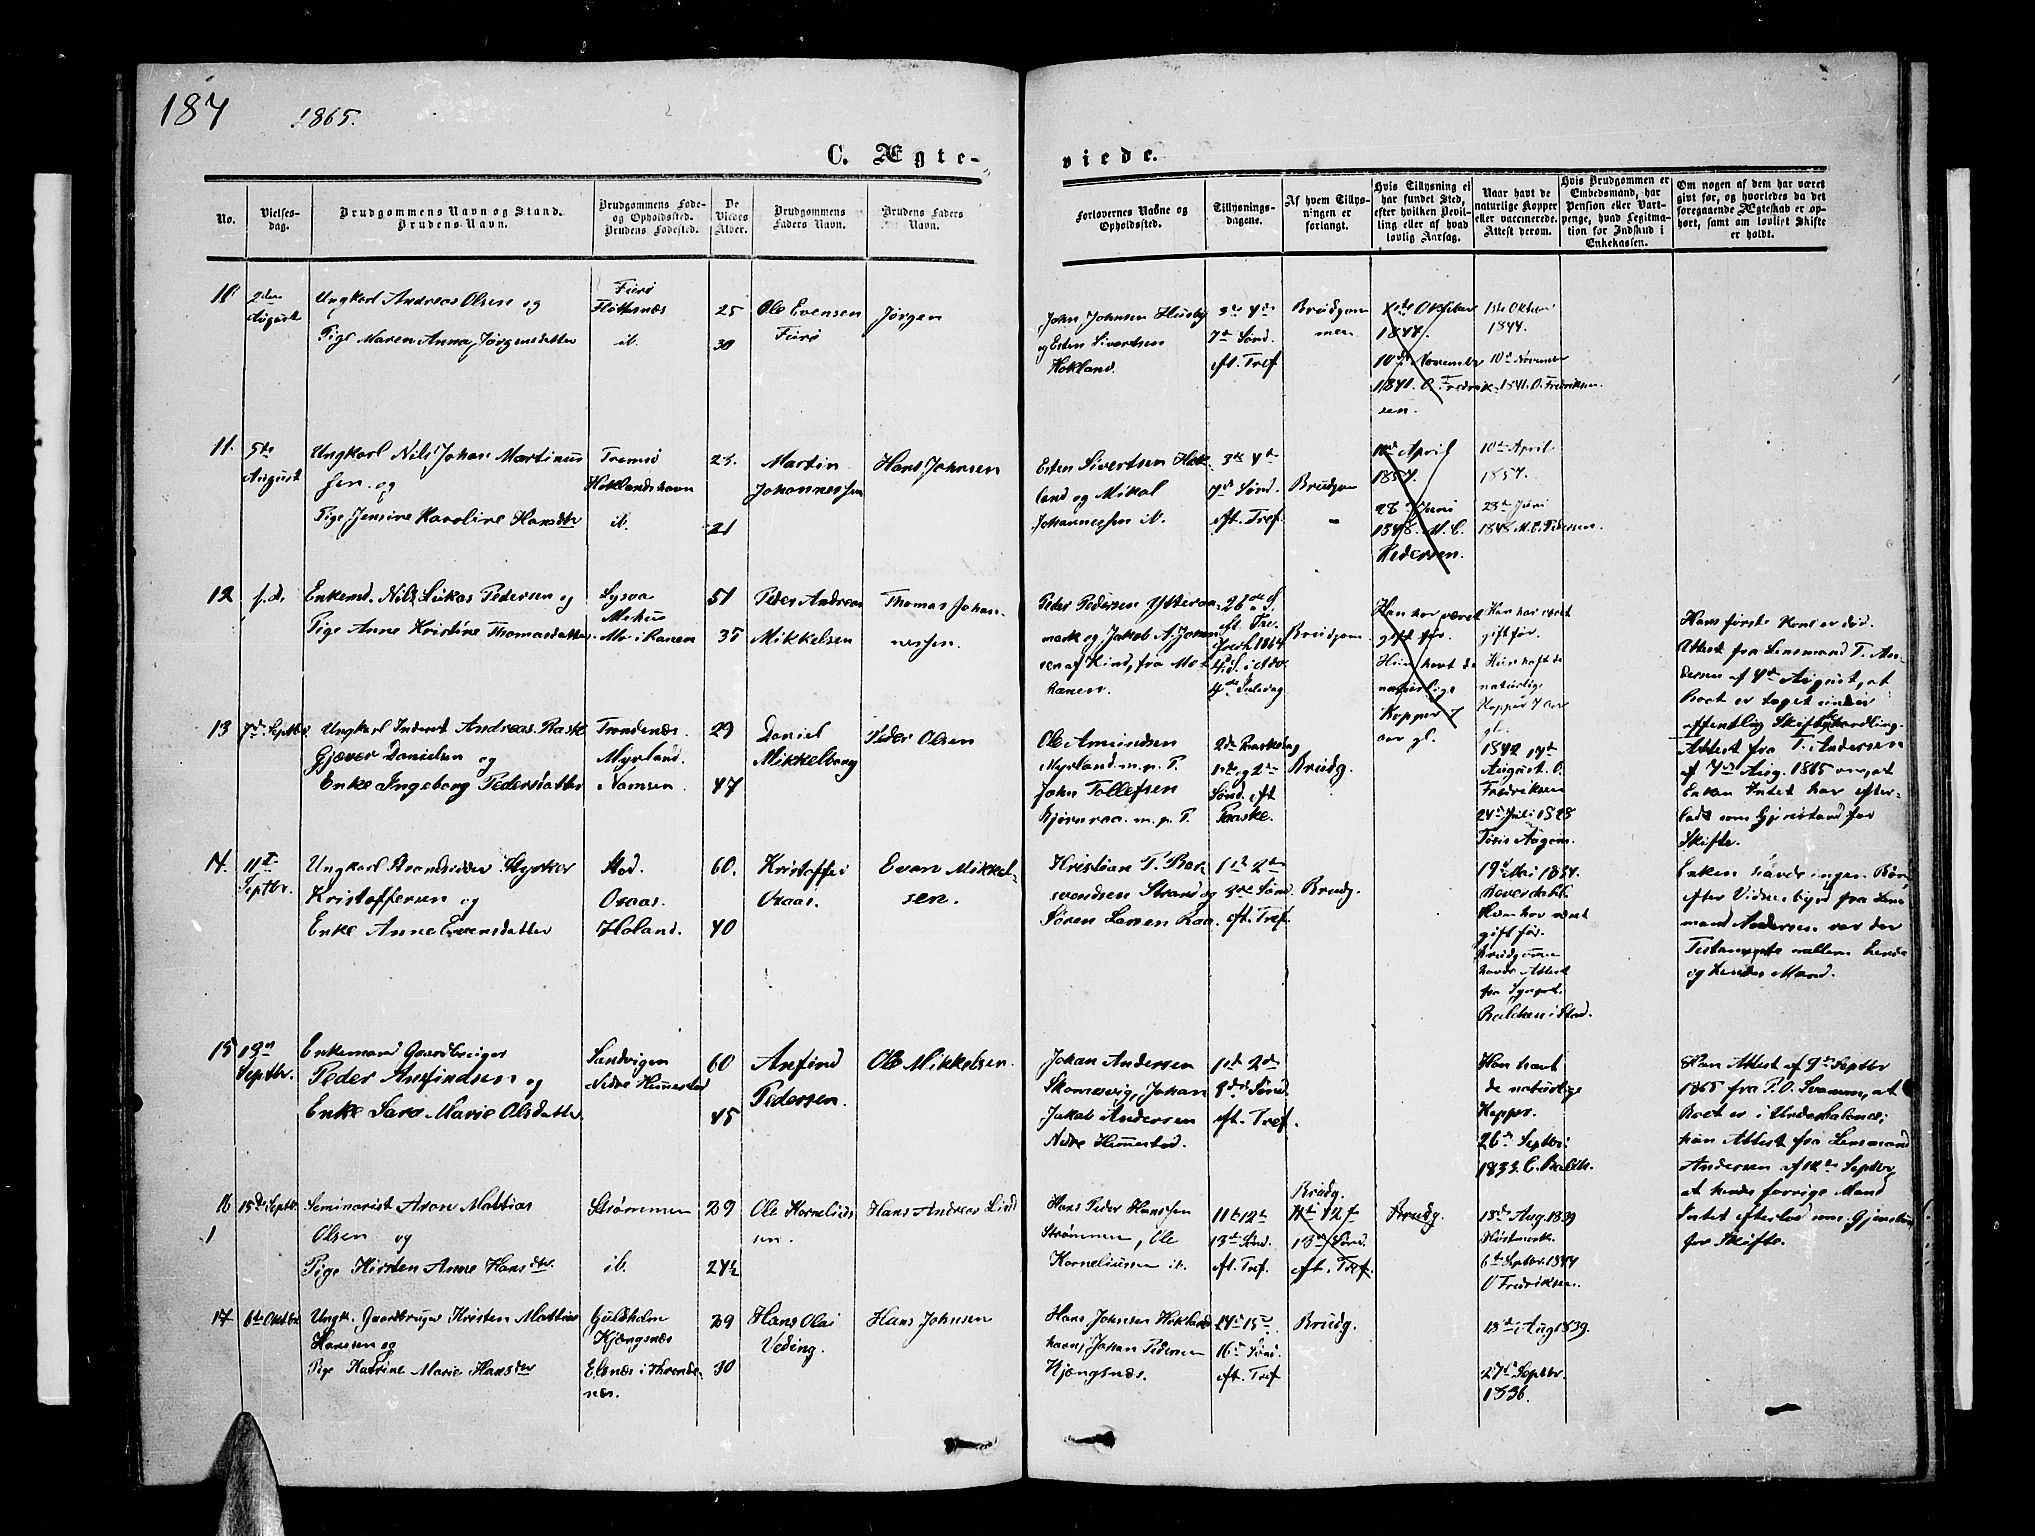 187
1865.
C. Ægte-
viede.
No.
Vielses-
dag.
Brudgommens Navn og Stand.
Brudens Navn.
Brudgommens Føde-
og Opholdssted.
Brudens Fødested.
De
Viedes
Alder.
Brudgommens
Faders Navn.
Brudens Faders
Navn.
Forlovernes Navne og
Opholdssted.
Tillysnings-
dagene.
Af hvem Tillys-
ningen er
forlangt.
Hvis Tillysning ei
har fundet Sted,
efter hvilken Bevil-
ling eller af hvad
lovlig Aarsag.
Naar havt de
naturlige Kopper
eller vaccinerede.
Attest derom.
Hvis Brudgommen er
Embedsmand, har
Pension eller Vart-
penge, hvad Legitima-
tion for Indskud i
Enkekassen.
Om nogen af dem har været
gift før, og hvorledes da det
foregaaende Ægteskab er op-
hørt, samt om lovligt Skifte
er holdt.
10
2den
August
Ungkarl Andreas Olsen og
Pige Maren Anna Jørgensdatter
ib.
25
30
Ole Evensen
Jørgen
John Johnsen Husby
og Esten Sivertsen
Hokland.
3de 4de
7de Sønd.
eft. Tref.
Brudgom
men
1ste Oktober
1844.
10de November
1841. O. Fredrik-
sen.
1ste Oktober
1844.
10de November
1841. O. Fredriksen.
11.
5te
August
Ungkarl Nils Johan Martinus
sen og
Pige Jensine Karoline Hansdtr
Tromsø
Hoklandshavn
ib.
23.
21
Martin
Johannessen
Hans Johnsen
Esten Sivertsen Hok
land og Mikal
Johannessen ib.
3de 4de
7de Sønd.
eft. Tref.
Brudgom
10de April
1857.
28de Juni
1848. M. C.
Pedersen.
10de April
1857.
28de Juni
1848 M. C. Pedersen.
12
s. d.
Enkemd. Nils Lukas Pedersen og
Pige Anne Kristine Thomasdatter
Mo i Ranen
51
35
Peder Andreas
Mikkelsen
Thomas Johan-
nessen.
Peter Pedersen Ytteraa-
mark og Jakob A. Johann
sen af Kind, fra Mo i
Ranen.
26de S.
eft. Tre-
fredh. 1864
4. S. i Adv.
4de Juledag
Brudgom
Han har været
gift før.
Hun havt de
naturlige
Kopper 7
aar gl.
Han har været
gift før.
Hun haft de
naturlige
Kopper 7 aar
gl.
Hans første Kone er død.
Attest fra Lensmand T. An-
dersen af 4de August, at
Boet er taget under
offentlig Skiftebehandling.
13
7de Septbr
Ungkarl Inderst Andreas Rask
Gjæver Danielsen og
Enke Ingeborg Pedersdatter
Trondenæs.
Myrland.
Namsen
29
47
Daniel
Mikkelborg
Peder Olsen
Ole Amundsen
Myrland m. p. P.
John Tollefsen
Bjørnraa. m. p. P.
2de Paaskedag
1ste og 2de
Sønd. eft
Paaske.
Brudg.
1842 19de
August. O.
Fredriksen
24de Juli 1828
Attest fra T. Andersen
af 7de Aug. 1865 om, at
Enken Intet har efter-
ladt som Gjenstand for
Skifte.
14.
11te
Septbr.
Ungkarl Styrker
Kristoffersen og
Enke Anne Evensdatter
Stod.
Osaas.
Holand.
60.
40
Kristoffer
Osaas.
Even Mikkel-
sen.
Kristian P. Bor
svendsen Strand og
Søren Larsen Raa.
1ste 2de
3de Sønd.
eft. Tref.
Brudg.
19de Mai 1834.
Beverdahl.
Hun har været
gift før.
Brudgommen
havde Attest
fra Sogneprst.
Balchen i Stod.
Enken havde ingen Børn,
efter Vidnesbyrd fra Lens
mand Andersen var der
Testamente mellem hende
og hendes Mand.
15
12te
Septbr.
Enkemand Gaardbruger
Peder Anfindsen og
Enke Sara Marie Olsdatter
Sandvigen
Nedre Hemmestad
60
45
Anfind
Pedersen.
Ole Mikkelsen.
Johan Andersen
Skomesvig, Johan
Jakob Andersen
Nedre Hemmestad.
1ste 2de
3de Sønd.
eft. Tref.
Han havt
de naturlige
Kopper.
26de Septbr.
1833. C. Baldtz.
Han Attest af 9de Septbr
1865 fra P. O. Svanum, at
Boet er i Underbalance;
hun Attest fra Lensmand
Andersen af 12te Septbr,
at hendes forrige Mand
Intet efterlod som Gjenstand
for Skifte.
16
15de Septbr
Seminarist Aron Mattias
Olsen og
Pige Kirsten Anne Hansdtr.
Strømmen
ib.
29
24½
Ole Kornelius
sen.
Hans Andreas Lind
Hans Peder Hanssen
Strømmen, Ole
Korneliussen ib.
11te 12te
13de Sønd.
eft. Tref.
Brudg.
11te 12te
13de Sønd.
eft. Tref.
Brudg.
18de Aug. 1839
Hostmark.
6te Septbr. 1844
O Fredriksen.
17
6te Oktbr
Ungk. Gaardbruger Kristen Mattias
Hanssen og
Pige Katrine Marie Hansdtr
Guldholm
Kjængsnæs
Elsnæs i Thronde-
næs.
29
30
Hans Olai
Veding.
Hans Johnsen
Hans Johnsen Hoklands
havn, Johan Pedersen
Kjængsnæs.
14de 15de
16de Sønd.
eft. Tref
Brudg.
18de Aug 1839.
27de Septbr.
1836.